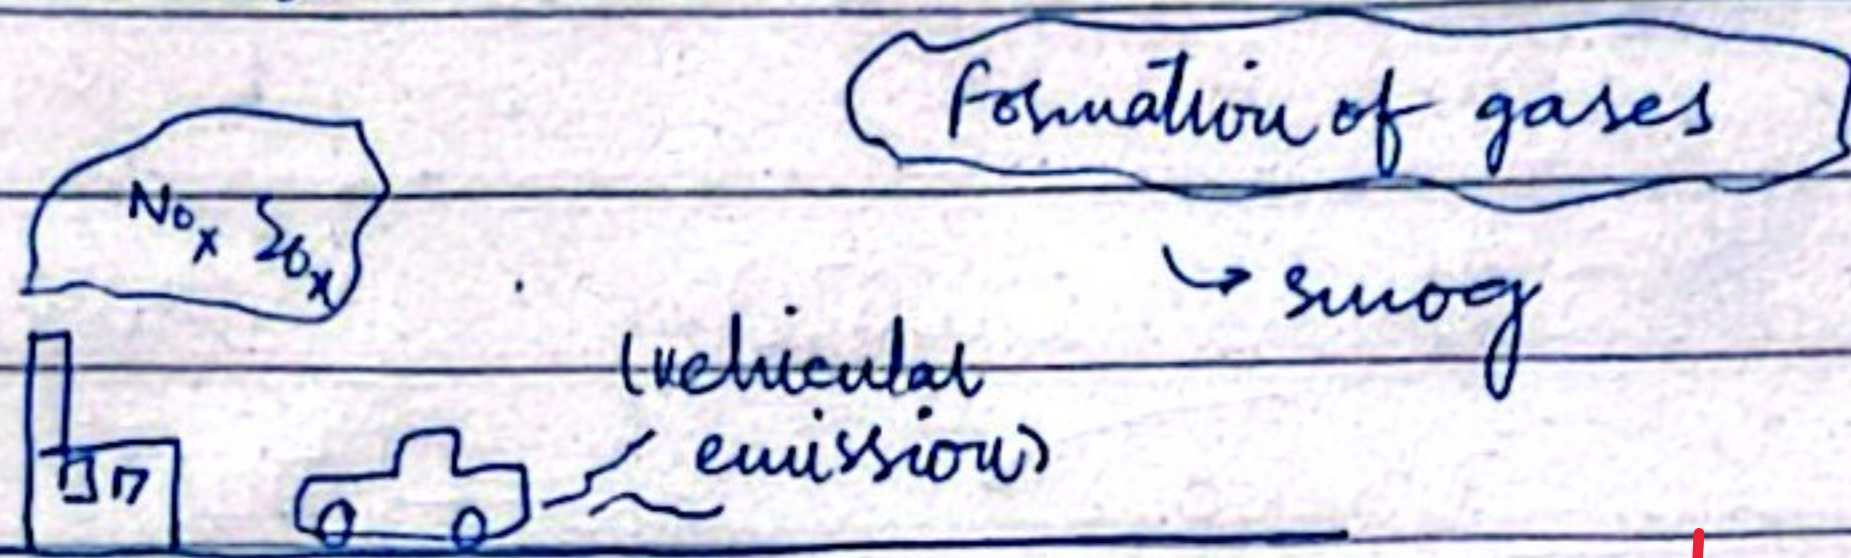 Formation of gases
NOx SOx
→ smog
(vehicular
emissions)